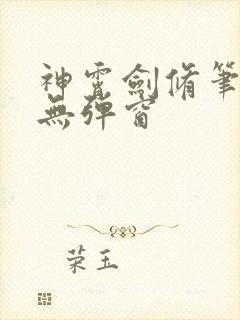 神霄劍脩筆
無彈窗
荣玉